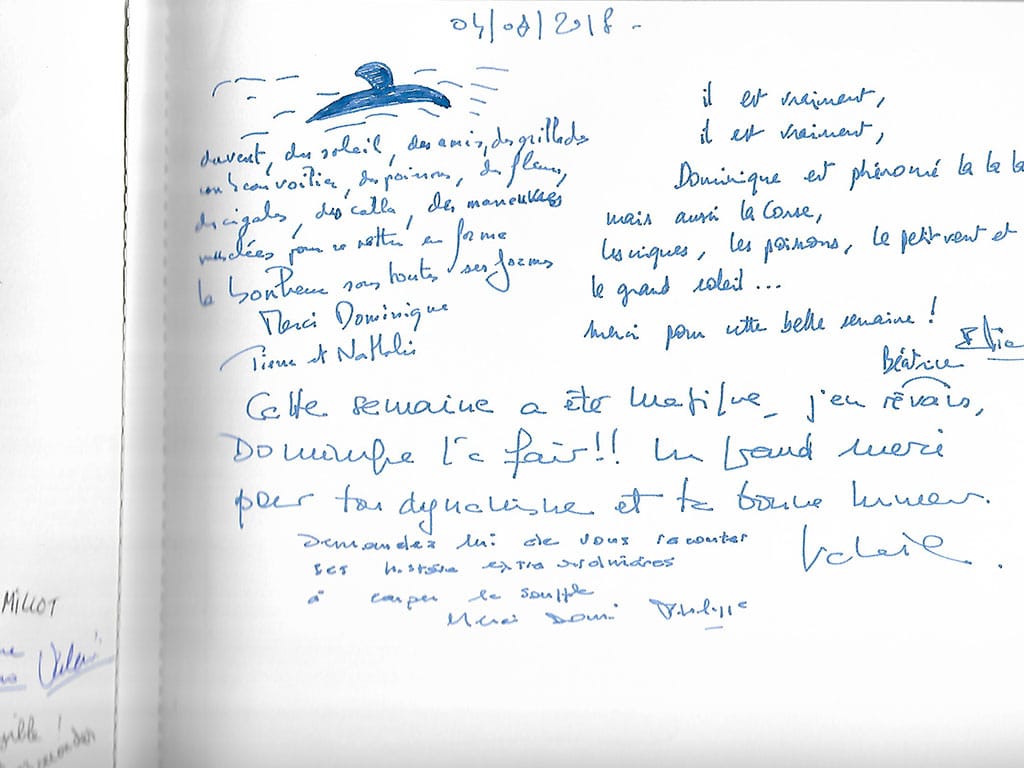 04/08/2018 -
du vent, du soleil, des amis, des grillades
un beau voilier, des poissons, des fleurs,
des cigales, des calls, des manoeuvres
musclées pour se mettre en forme
le bonheur sous toutes ses formes
Merci Dominique
Pierre et Nathalie
il est vraiment,
il est vraiment,
Dominique est phénomé la la la
mais aussi la Corse,
les criques, les poissons, le petit vent et
le grand soleil...
Merci pour cette belle semaine !
Béatrice
Cette semaine a été magique_ j'en rêvais,
Dominique l'a fait!! Un grand merci
pour ton dynamisme et ta bonne humeur.
Valérie
Demandez lui de vous raconter
ses histoire extra ordinaires
à couper le souffle
Merci Domi Philippe
MILLOT